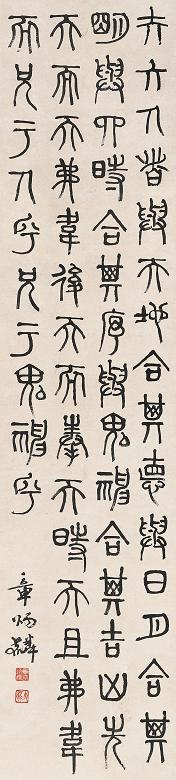 夫大人者與天地合其德與日月合其
明與四時合其序與鬼神合其吉凶先
天而天弗韋後天而奉天時天且弗韋
而兄于人乎兄于鬼神乎
章炳麟